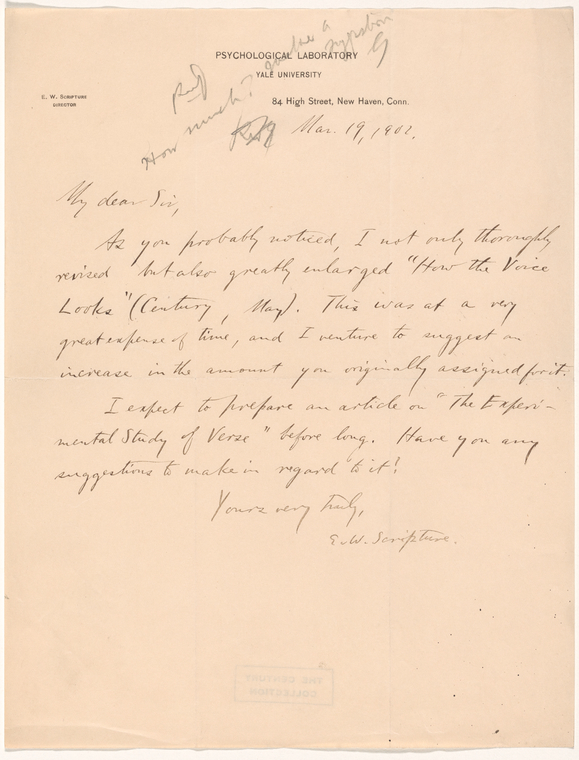 PSYCHOLOGICAL LABORATORY
YALE UNIVERSITY
E. W. SCRIPTURE
DIRECTOR
84 High Street, New Haven, Conn.
How much?
Mar. 19, 1902.
My dear Sir,
As you probably noticed, I not only thoroughly
revised but also greatly enlarged "How the Voice
Looks" (Century, May). This was at a very
great expense of time, and I venture to suggest an
increase in the amount you originally assigned for it.
I expect to prepare an article on "The Experi-
mental Study of Verse" before long. Have you any
suggestions to make in regard to it?
Yours very truly,
E. W. Scripture.
THE CENTURY
COLLECTION